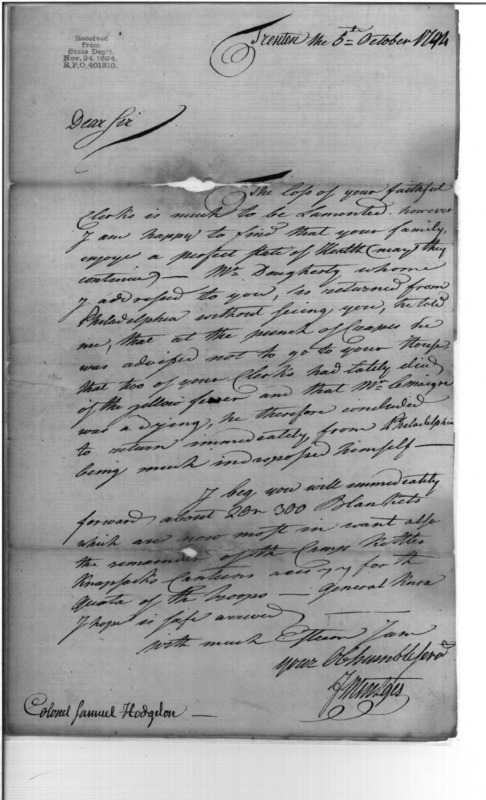 Received
from
State Dep't.
Nov. 24. 1894.
R.P.O. 401210.
Trenton the 5th October 1794
Dear Sir
The loss of your faithful
Clerks is much to be Lamented. however
I am happy to find that your family,
enjoye a perfect State of Health (may they
continue) — Mr. Daugherty whome
I addressed to you, is returned from
Philadelphia without seeing you, he told
me, that at the
was advised not to go to your House
that too of your Clerks had lately died
of the yellow fever and that Mr.
was a dying, he therefore concluded
to return immediately from Philadelphia
being much indisposed himself —
I beg you will immediately
forward about 2 or 300 Blankets
which are now most in want also
the remainder of the Camp Kettles
Knapsacks Canteens for the
quota of the troops — General Knox
I hope is safe arrived
with much Esteem I am
your Ob humble Serv
Colonel Samuel Hodgdon —